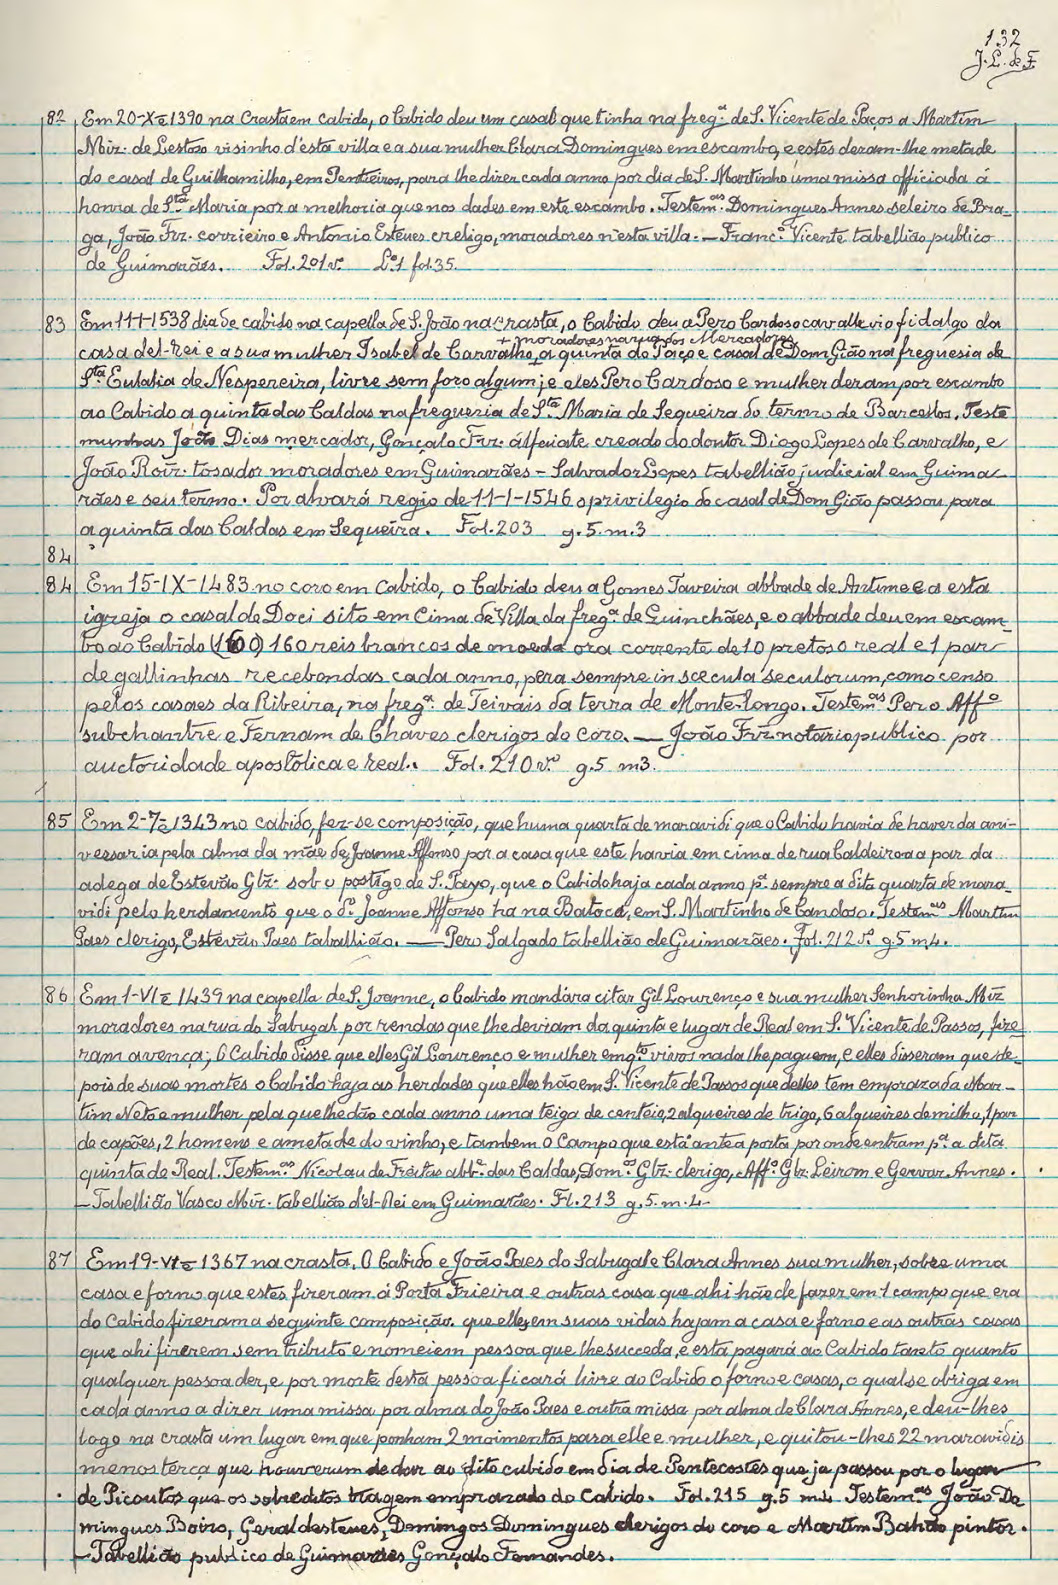 132
J. L. de F.
82 Em 20-X-e 1390 na Crasta em cabido, o Cabido deu um casal que tinha na freg.ª de S. Vicente de Paços a Martim
Miz. de Lestoso visinho d'esta villa e a sua mulher Clara Domingues em escambo, e estes deram-lhe metade
do casal de Guilhamilho, em Pentieiros, para lhe dizer cada anno por dia de S. Martinho uma missa officiada á
honra de S.ta Maria por a melhoria que nos dades em este escambo. Testem.as Domingues Annes seleiro de Bra-
ga, João Frz. corrieiro e Antonio Esteves creligo, moradores n'esta villa. — Franc.º Vicente tabellião publico
de Guimarães. Fol. 201 v.º L.º 1 fol 35.
83 Em 11-1-1538 dia de cabido na capella de S. João na crasta, o Cabido deu a Pero Cardoso cavalleiro fidalgo da
+ moradores na rua dos Mercadores
casa del-Rei e a sua mulher Isabel de Carvalho, + a quinta do Paço e casal de Dom Gião na freguesia de
S.ta Eulalia de Nespereira, livre sem foro algum; e eles Pero Cardoso e mulher deram por escambo
ao Cabido a quinta das Caldas na freguesia de S.ta Maria de Sequeira do termo de Barcellos. Teste
munhas João Dias mercador, Gonçalo Frz. alfeiate creado do doutor Diogo Lopes de Carvalho, e
João Roiz. tosador moradores em Guimarães – Salvador Lopes tabellião judicial em Guima
rães e seu termo. Por alvará regio de 11-1-1546 o privilegio do casal de Dom Gião passou para
a quinta das Caldas em Sequeira. Fol. 203 g. 5. m. 3
84
84 Em 15-IX-1483 no coro em Cabido, o Cabido deu a Gomes Taveira abbade de Antime e a esta
igreja o casal de Doci sito em Cima de Villa da freg.ª de Guinchães, e o abbade deu em escam-
bo ao Cabido (160) 160 reis brancos de moeda ora corrente de 10 pretos o real e 1 par
de gallinhas recebondas cada anno, pera sempre in scecula seculorum, como censo
pelos casaes da Ribeira, na freg.ª de Teivais da terra de Monte-longo. Testem.as Pero Aff.º
subchantre e Fernam de Chaves clerigos do coro. — João Frz notario publico por
auctoridade apostolica e real. Fol. 210 v.º g. 5 m 3.
85 Em 2-7-e 1343 no cabido, fez-se composição, que huma quarta de maravidi que o Cabido havia de haver da ani-
versaria pela alma da mãe de Joanne Affonso por a casa que este havia em cima de rua Caldeiroa a par da
adega de Estevão Glz. sob o postigo de S. Payo, que o Cabido haja cada anno p.ª sempre a dita quarta de mara-
vidi pelo herdamento que o d.º Joanne Affonso ha na Batoca, em S. Martinho de Candoso. Testem.as Martim
Paes clerigo, Estevão Paes taballião. — Pero Salgado tabellião de Guimarães. Fol. 212 v.º g. 5 m 4.
86 Em 1-VI-e 1439 na capella de S. Joanne, o Cabido mandára citar Gil Lourenço e sua mulher Senhorinha Miz
moradores na rua do Sabugal por rendas que lhe deviam da quinta e lugar de Real em S. Vicente de Passos, fize-
ram avença; O Cabido disse que elles Gil Lourenço e mulher emq.to vivos nada lhe paguem, e elles disseram que de-
pois de suas mortes o Cabido haja as herdades que elles hão em S. Vicente de Passos que delles tem emprazada Mar-
tim Neto e mulher pela que lhe dão cada anno uma teiga de centeio, 2 alqueires de trigo, 6 alqueires de milho, 1 par
de capões, 2 homens e ametade do vinho, e tambem o Campo que está ante a porta por onde entram p.ª a dita
quinta de Real. Testem.as Nicolau de Freitas abb.e das Caldas, Dom.os Glz. clerigo, Aff.º Glz. Leirom e Gervaz Annes.
— Tabellião Vasco Miz. tabellião d'el-Rei em Guimarães. Fl. 213 g. 5. m. 4
87 Em 19-VI-e 1367 na crasta. O Cabido e João Paes do Sabugal e Clara Annes sua mulher, sobre uma
casa e forno que estes fizeram á Porta Frieira e outras casa que ahi hão de fazer em 1 campo que era
do Cabido fizeram a seguinte composição. que elles em suas vidas hajam a casa e forno e as outras casas
que ahi fizerem sem tributo e nomeiem pessoa que lhe succeda, e esta pagará ao Cabido tanto quanto
qualquer pessoa der, e por morte desta pessoa ficará livre ao Cabido o forno e casas, o qual se obriga em
cada anno a dizer uma missa por alma do João Paes e outra missa por alma de Clara Annes, e deu-lhes
logo na crasta um lugar em que ponham 2 moimentos para elle e mulher, e quitou-lhes 22 maravidis
menos terça que houverum de dar ao dito cabido em dia de Pentecostes que ja passou por o lugar
de Picoutos que os sobreditos tragem emprazado do Cabido. Fol. 215 g. 5 m 4. Testem.as João Do
mingues Boiro, Geraldesteves, Domingos Domingues clerigos do coro e Martim Bahão pintor.
— Tabellião publico de Guimarães Gonçalo Fernandes.